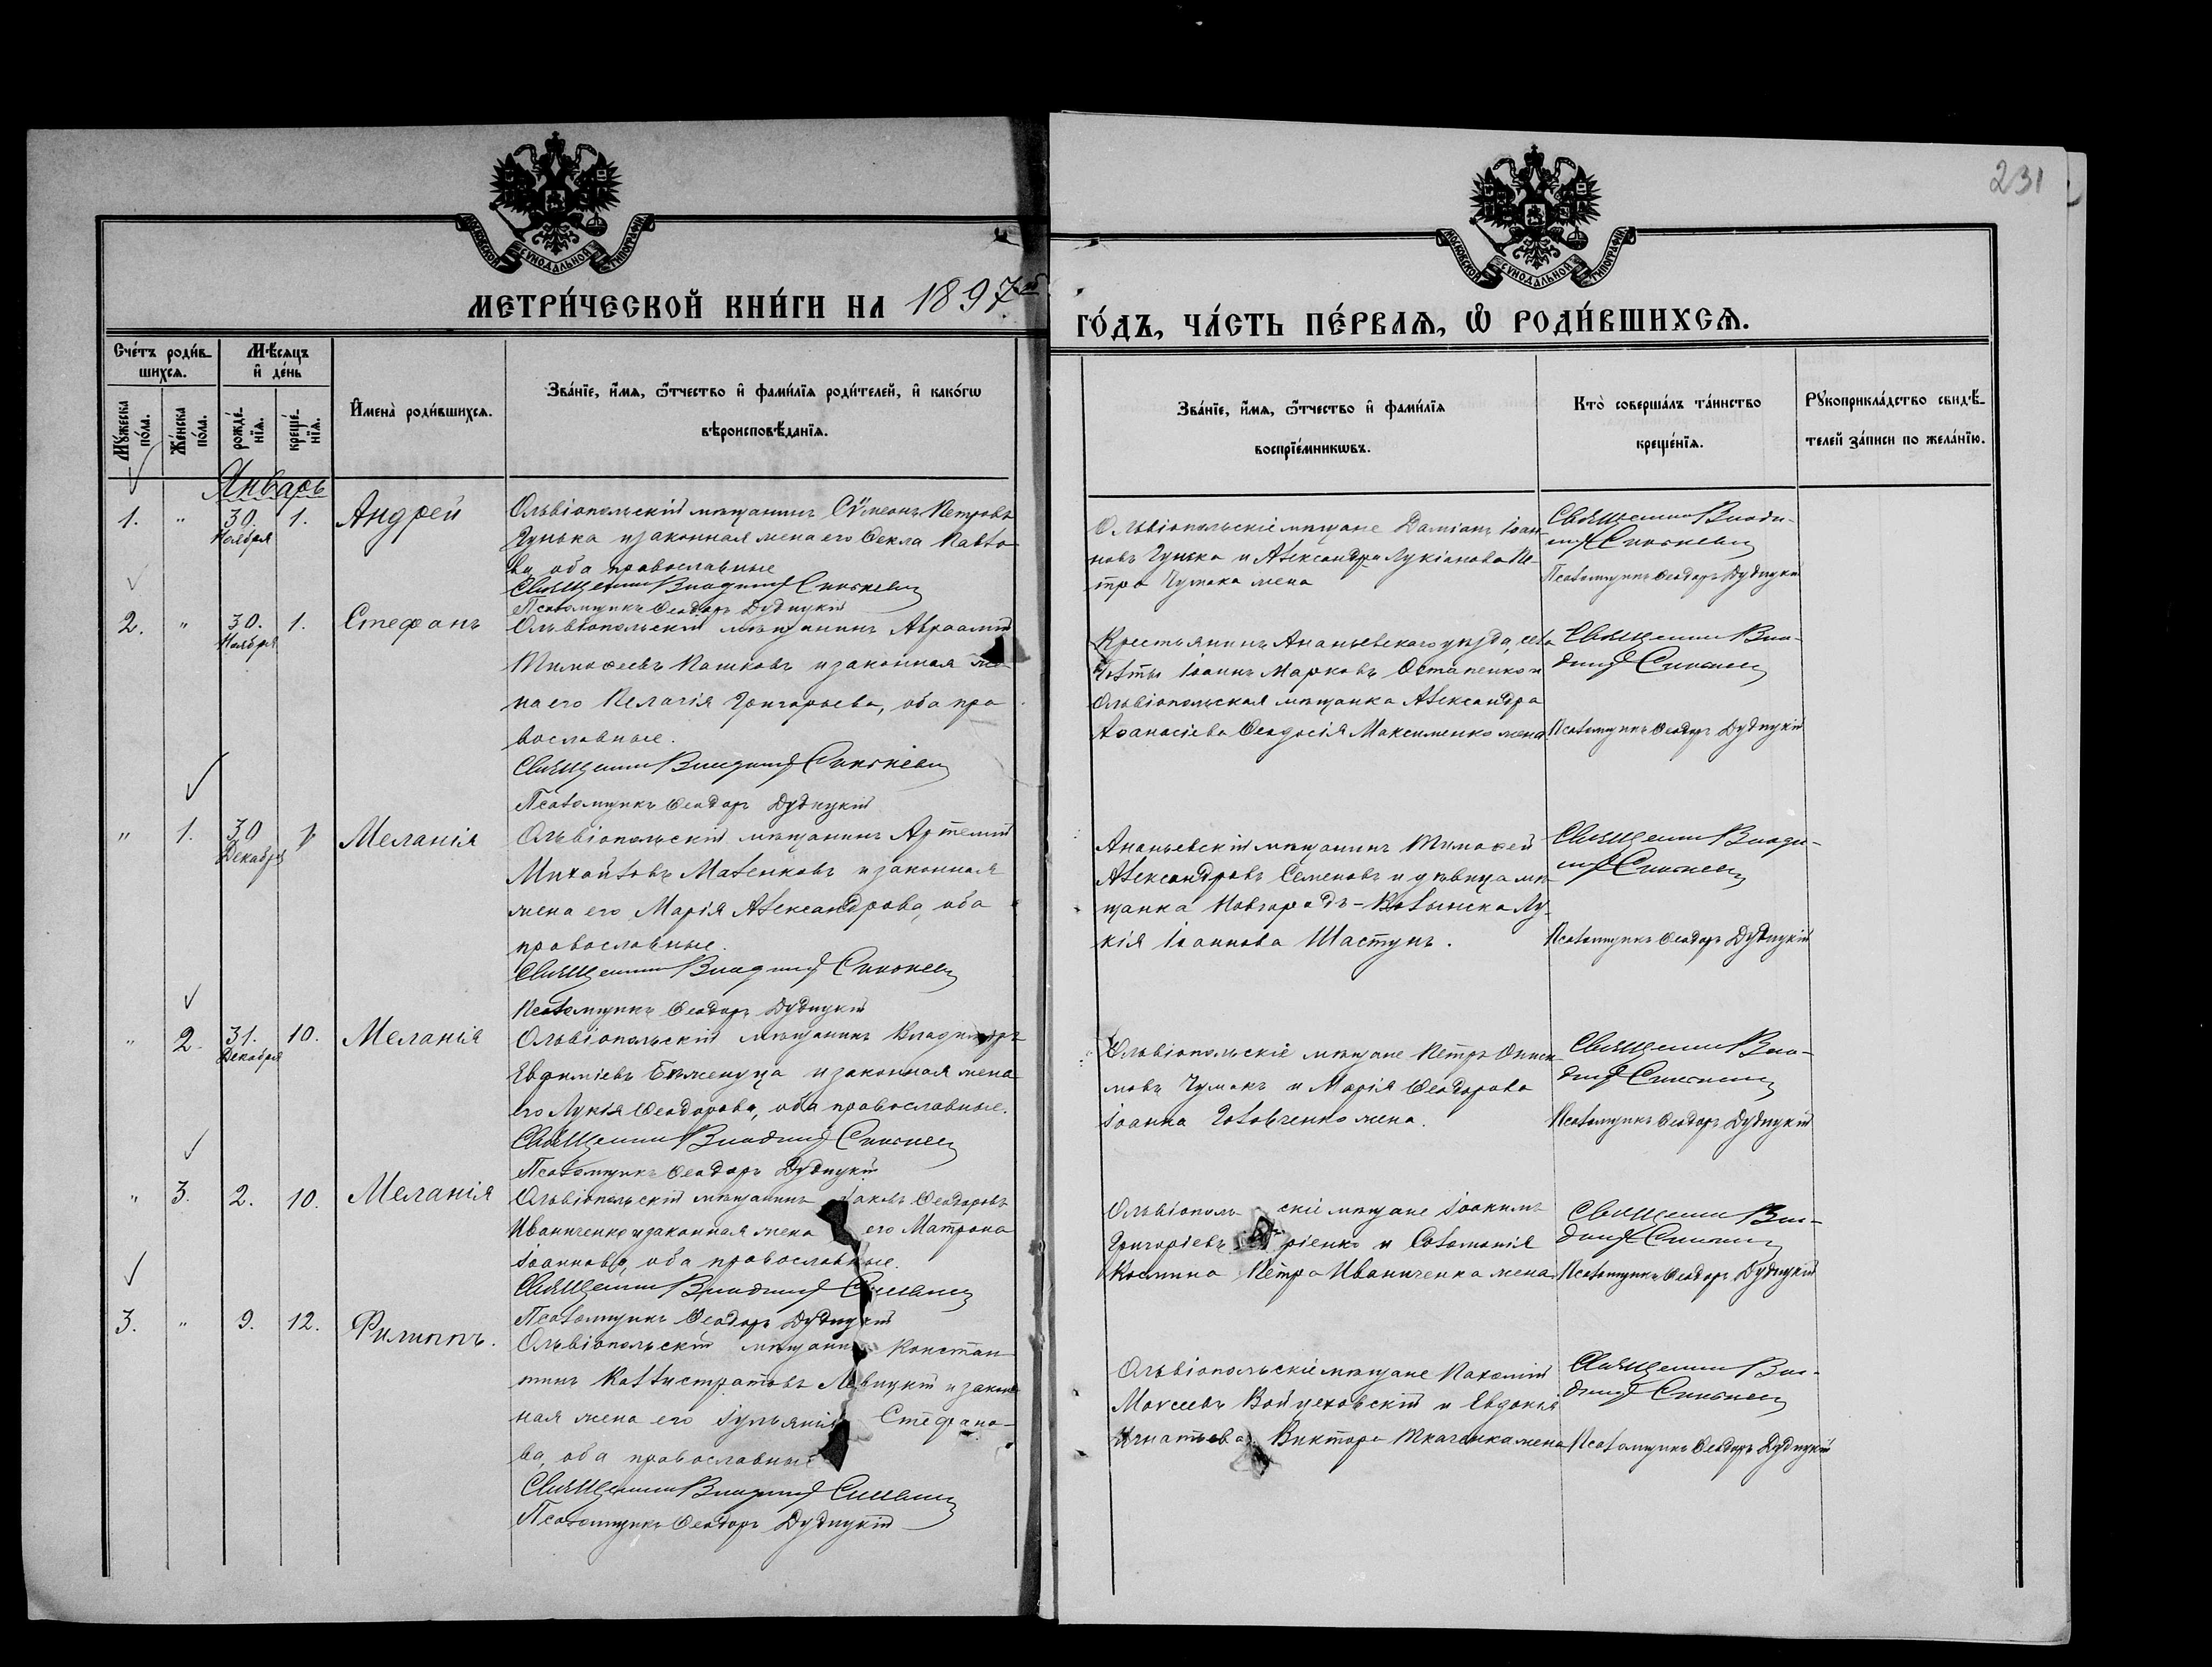 231
МОСКОВСКОЙ СѴНОДАЛЬНОЙ ТИПОГРАФІИ
МОСКОВСКОЙ СѴНОДАЛЬНОЙ ТИПОГРАФІИ
МЕТРИ́ЧЕСКОЙ КНИ́ГИ НА 1897й
ГО́ДЪ, ЧА́СТЬ ПЕ́РВАѦ, Ѡ҆ РОДИ́ВШИХСѦ.
Сче́тъ роди́в-
шихсѧ.
Мѣ́сѧцъ
и҆ де́нь
Мꙋ́жеска по́ла.
Же́нска по́ла.
рожде́нїѧ.
креще́нїѧ.
И҆мена̀ роди́вшихсѧ.
Зва́нїе, и҆́мѧ, ѻ҆́тчество и҆ фами́лїѧ роди́телей, и҆ како́гѡ
вѣроисповѣ́данїѧ.
Зва́нїе, и҆́мѧ, ѻ҆́тчество и҆ фами́лїѧ
воспрїе́мникѡвъ.
Кто̀ соверша́лъ та́инство
креще́нїѧ.
Рꙋкоприкла́дство свидѣ́-
телей за́писи по жела́нїю.
Январь
1. " 30. Ноября 1. Андрей
Ольвіопольскій мѣщанинъ Сѵмеонъ Петровъ
Гунька и законная жена его Ѳекла Павло-
ва, оба православные
Священникъ Владимиръ
Псаломщикъ Ѳеодоръ Дудицкій
Ольвіопольскіе мѣщане Даміанъ Іоан-
новъ Гунька и Александра Лукіанова Пе-
тра Чумака жена
Священникъ Влади-
миръ
Псаломщикъ Ѳеодоръ Дудицкій
2. " 30. Ноября 1. Стефанъ
Ольвіопольскій мѣщанинъ Авраамій
Тимоѳеевъ Пашковъ и законная же-
на его Пелагія Григорьева, оба пра
вославные.
Священникъ Владимиръ
Псаломщикъ Ѳеодоръ Дудицкій
Крестьянинъ Ананьевскаго уѣзда, села
Іоаннъ Марковъ Остапенко и
Ольвіопольская мѣщанка Александра
Аѳанасіева Ѳеодосія Максименко жена
Священникъ Вла-
димиръ
Псаломщикъ Ѳеодоръ Дудицкій
" 1. 30 Декабря 1. Меланія
Ольвіопольскій мѣщанинъ Артемій
Михайловъ Маленковъ и законная
жена его Марія Александрова, оба
православные.
Священникъ Владимиръ
Псаломщикъ Ѳеодоръ Дудицкій
Ананьевскій мѣщанинъ Тимоѳей
Александровъ Семеновъ и дѣвица мѣ-
щанка Новгородъ-Волынска Лу-
кія Іоаннова Шастунъ.
Священникъ Влади-
миръ
Псаломщикъ Ѳеодоръ Дудицкій
" 2. 31. Декабря 10. Меланія
Ольвіопольскій мѣщанинъ Владимиръ
Евфиміевъ Бѣженуца и законная жена
его Лукія Ѳеодорова, оба православные.
Священникъ Владимиръ
Псаломщикъ Ѳеодоръ Дудицкій
Ольвіопольскіе мѣщане Петръ Ониси-
мовъ Чумакъ и Марія Ѳеодорова
Іоанна Головченко жена.
Священникъ Вла-
димиръ
Псаломщикъ Ѳеодоръ Дудицкій
" 3. 2. 10. Меланія
Ольвіопольскій мѣщанинъ Ѳеодоровъ
Иваниченко и законная жена его Матрона
Іоаннова, оба православные.
Священникъ Владимиръ
Псаломщикъ Ѳеодоръ Дудицкій
Ольвіопольскіе мѣщане Іоакимъ
Григоріевъ и Соломонія
Косьмина Петра Иваниченка жена
Священникъ Вла-
димиръ
Псаломщикъ Ѳеодоръ Дудицкій
3. " 9. 12. Филиппъ.
Ольвіопольскій мѣщанинъ Констан-
тинъ Каллистратовъ Левицкій и закон-
ная жена его Іульянія Стефано-
ва, оба православные
Священникъ Владимиръ
Псаломщикъ Ѳеодоръ Дудицкій
Ольвіопольскіе мѣщане Пахомій
Моѵсеевъ Войцеховскій и Евдокія
Игнатьева Виктора Ткаченка жена
Священникъ Вла-
димиръ
Псаломщикъ Ѳеодоръ Дудицкій